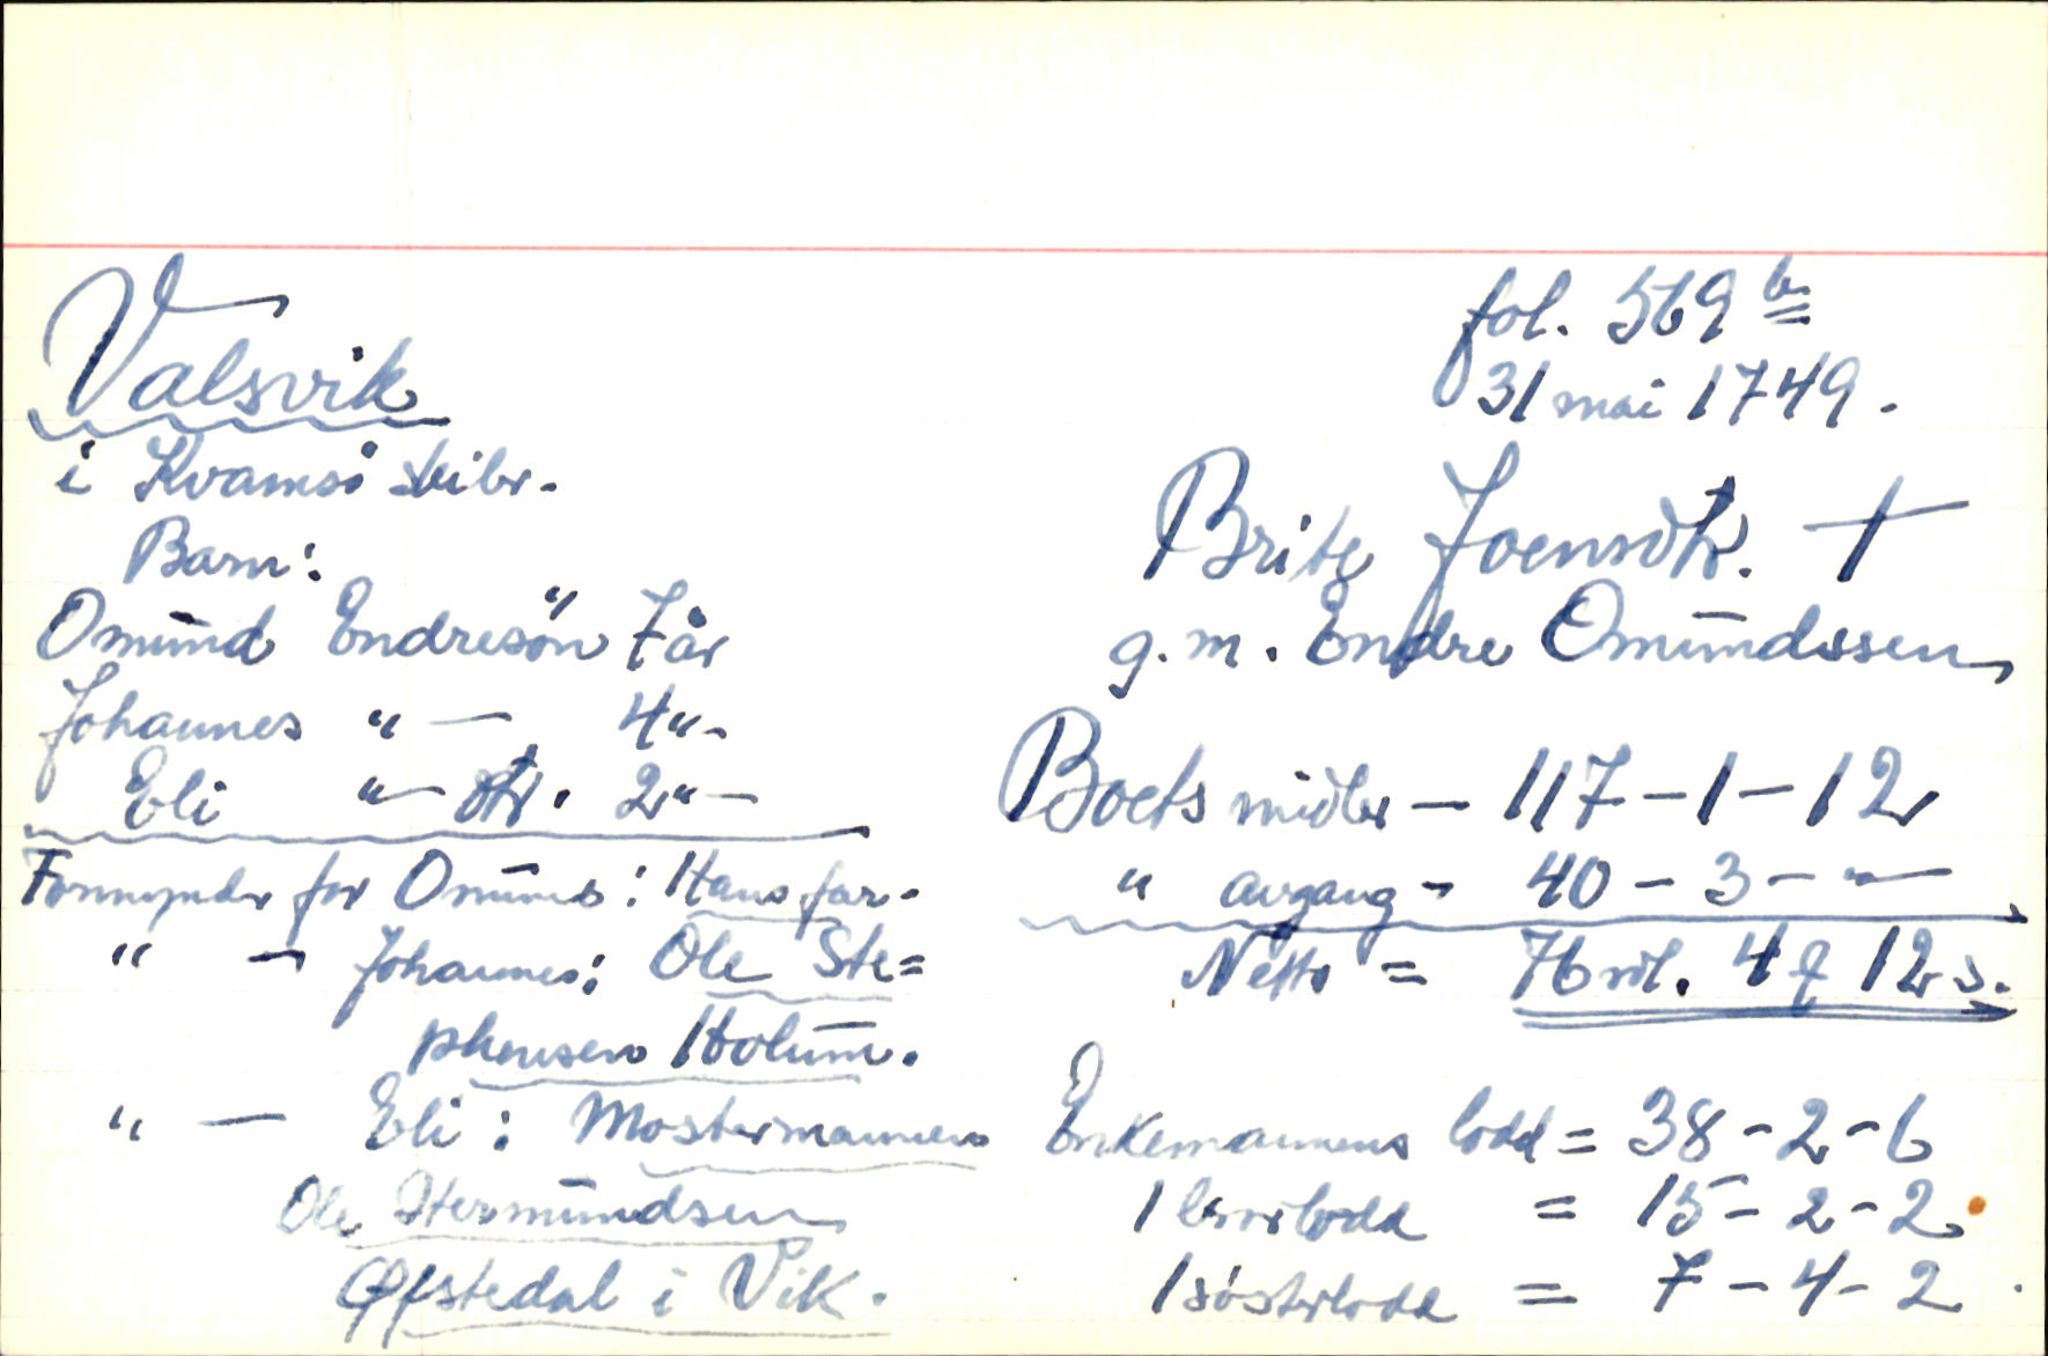 Valsvik
i Kvamsö skibr.
Barn:
Omund Endresön 7 år
Johannes " — 4 " -
Eli " — dtr. 2 " —
Formynder for Omund: Hans far.
" — Johannes: Ole Ste=
phensen Holum.
" — Eli: Mostermannen
Ole Hermundsen
Öfstedal i Vik.
fol. 569 b
31 mai 1749.
Brite Joensdtr. †
g. m. Endre Omundssen
Boets midler — 117 - 1 - 12
" avgang - 40 - 3 - " —
Netto = 76 rdl. 4 ƒ 12 s.
Enkemannens lodd = 38 - 2 - 6
1 brorlodd = 15 - 2 - 2.
1 sösterlodd = 7 - 4 - 2